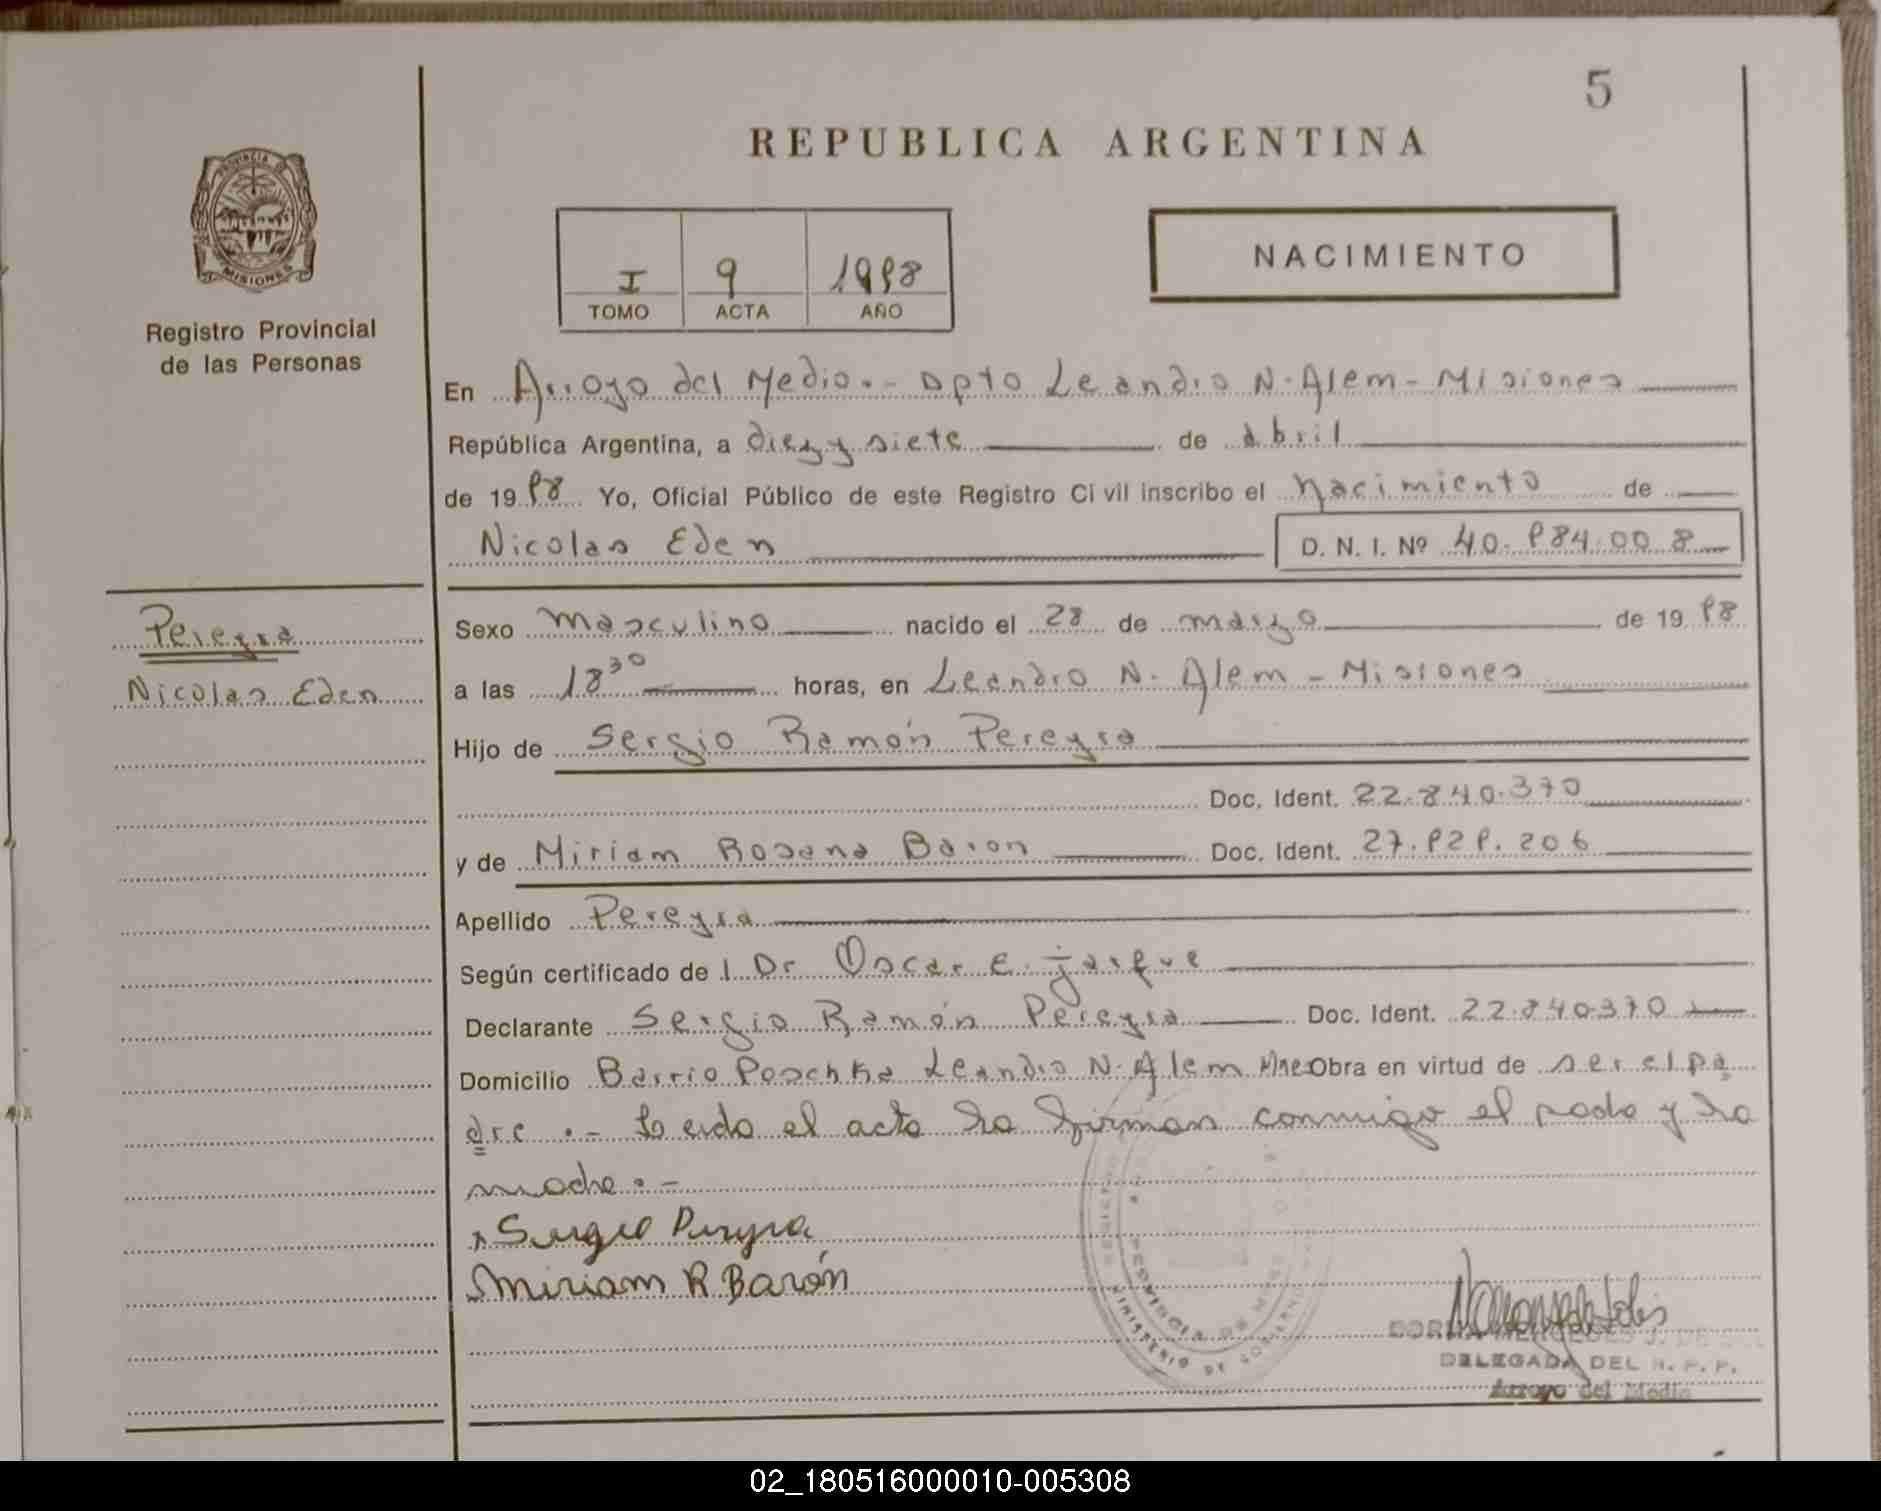 5
REPUBLICA ARGENTINA
PROVINCIA
MISIONES
Registro Provincial
de las Personas
I 9 1998
TOMO ACTA AÑO
NACIMIENTO
En Arroyo del Medio.- Dpto Leandro N. Alem - Misiones
República Argentina, a diez y siete de abril
de 19 98 Yo, Oficial Público de este Registro Civil inscribo el nacimiento de
Nicolas Eden D. N. I. Nº 40.984.008
Pereyra
Nicolas Eden
Sexo masculino nacido el 28 de marzo de 19 98
a las 18 30 horas, en Leandro N. Alem - Misiones
Hijo de Sergio Ramón Pereyra
Doc. Ident. 22.840.370
y de Miriam Rosana Baron Doc. Ident. 27.929.206
Apellido Pereyra
Según certificado de l Dr Oscar E. Jarque
Declarante Sergio Ramón Pereyra Doc. Ident. 22.840.370
Domicilio Barrio Poschka Leandro N. Alem Mnes Obra en virtud de ser el pa
dre .- Leida el acta la firman conmigo el padre y la
madre.-
Sergio Pereyra
Miriam R Barón
PROVINCIA DE MISIONES
MINISTERIO DE GOBIERNO
DELEGADA DEL R. P. P.
Arroyo del Medio
02_180516000010-005308